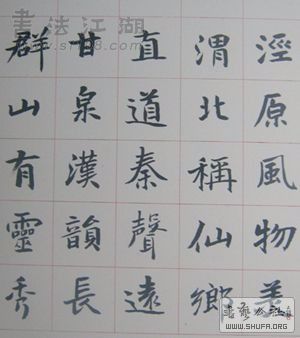 涇原風物美
渭北稱仙鄉
直道秦聲遠
甘泉漢韻長
群山有靈秀
書法江湖
WWW.SHUFA.ORG